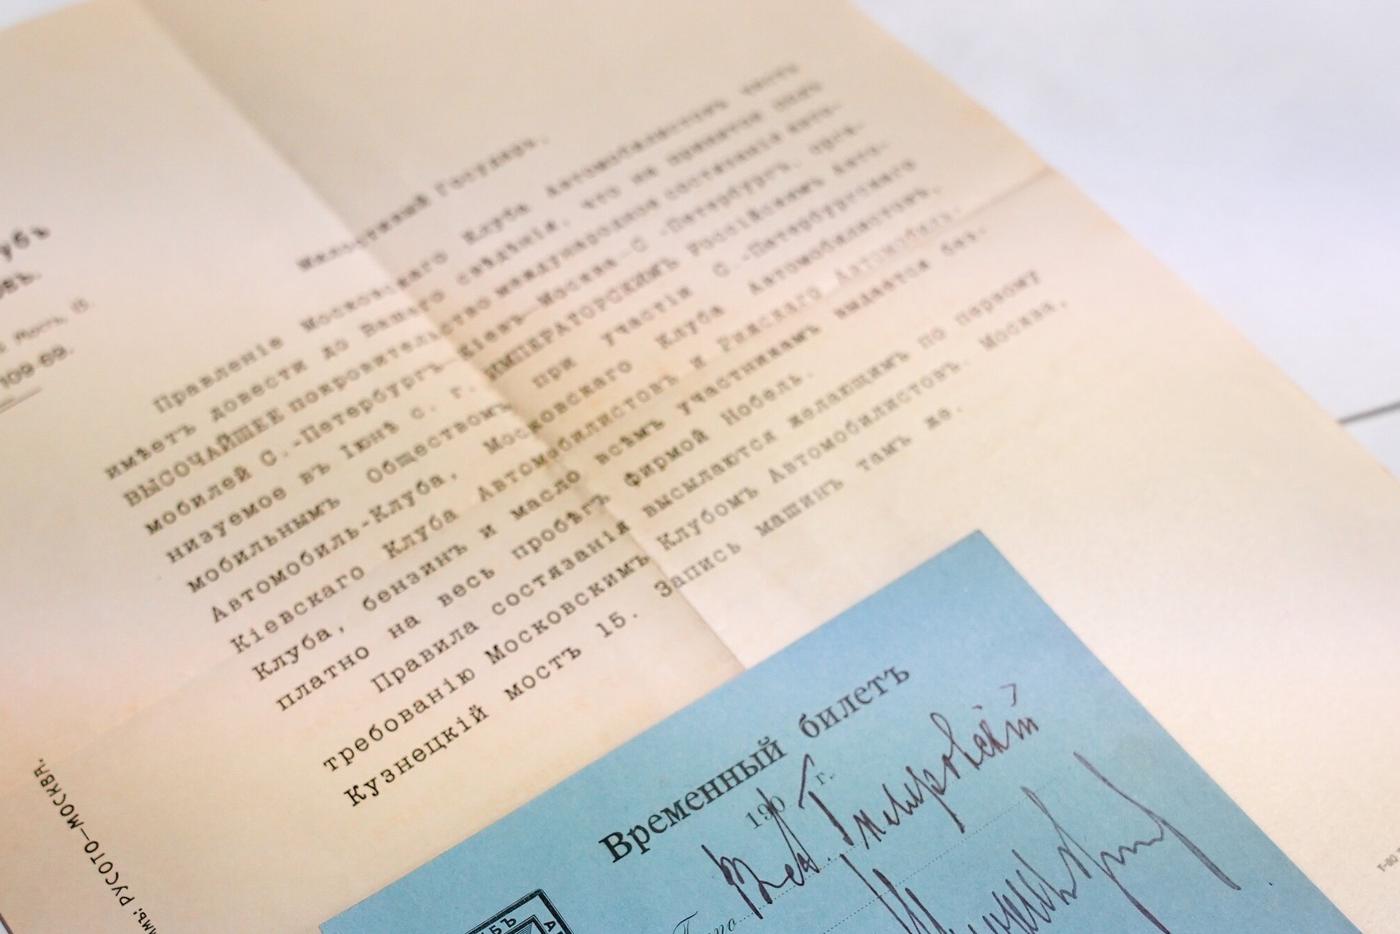 убъ
овъ.
109-69.
Милостивый Государь,
Правленіе Московскаго Клуба Автомобилистовъ честь
имѣетъ довести до Вашего свѣдѣнія, что на принятое подъ
ВЫСОЧАЙШЕЕ покровительство международное состязаніе авто-
мобилей С.-Петербургъ-Кіевъ-Москва-С.-Петербургъ, орга-
низуемое въ Іюнѣ с. г. ИМПЕРАТОРСКИМЪ Россійскимъ Авто-
мобильнымъ Обществомъ при участіи С.-Петербургскаго
Автомобиль-Клуба, Московскаго Клуба Автомобилистовъ,
Кіевскаго Клуба Автомобилистовъ и Рижскаго Автомобиль-
Клуба, бензинъ и масло всѣмъ участникамъ выдается без-
платно на весь пробѣгъ фирмой Нобель.
Правила состязанія высылаются желающимъ по первому
требованію Московскимъ Клубомъ Автомобилистовъ. Москва,
Кузнецкій мостъ 15. Запись машинъ тамъ же.
РУССОТО—МОСКВА.
Временный билетъ
190 г.
Гиляровскій